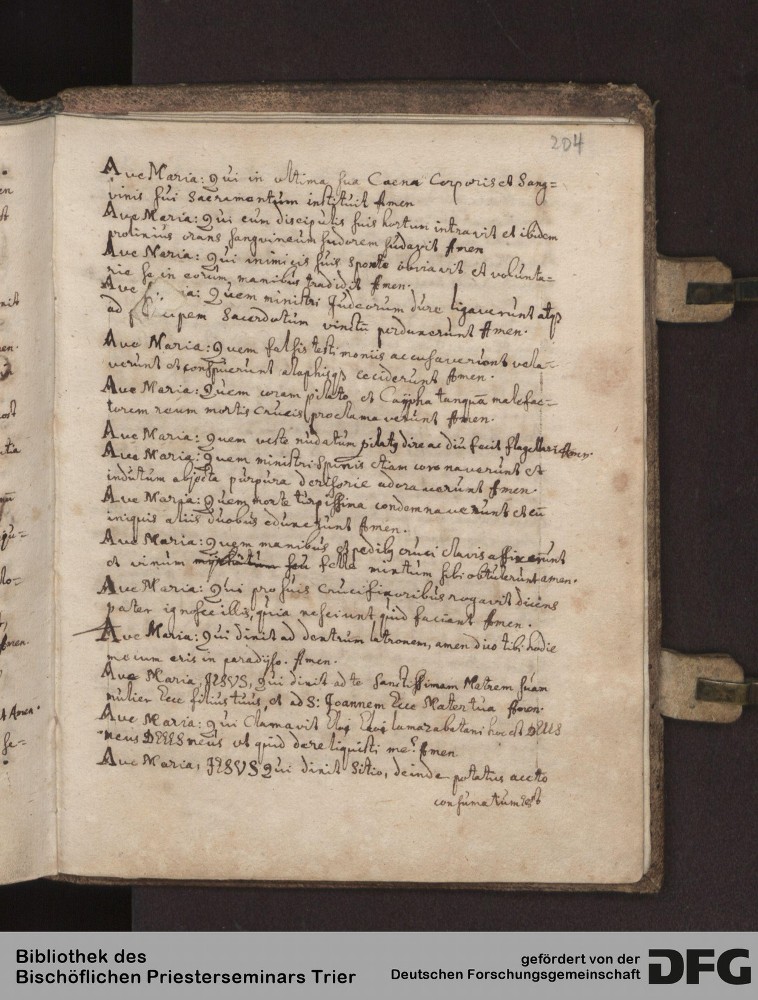 204
Ave Maria: Qui in ultima sua Caena Corporis et Sang=
vinis sui Sacramentum instituit Amen
Ave Maria: Qui cum discipulis suis hortum intravit et ibidem
protinius orans sanguineum sudorem sudavit Amen
Ave Maria: Qui inimicis suis sponte obviavit et volunta=
rie se in eorum manibus tradidit Amen.
Ave ia: Quem ministri Judeorum dure ligaverunt atq3
ad cipem Sacerdotum vinctu perduxerunt Amen.
Ave Maria: Quem falsis testimoniis accusaverunt vela-
verunt et conspuerunt alaphisq3 ceciderunt Amen.
Ave Maria: Quem coram pilato et Caypha tanqua malefac-
torem reum mortis Crucis proclamaverunt Amen.
Ave Maria: Quem veste nudatum pilat9 dire ac diu fecit flagellari Amen.
Ave Maria: Quem ministri Spinis etiam coronaverunt et
indutum abjecta purpura derisorie adoraverunt Amen.
Ave Maria: Quem morte turpissina condemnaverunt et cu
iniquis aliis duobus eduxerunt Amen.
Ave Maria: Quem manibus et pedib9 cruci clavis affixerunt
et vinum seu felle mixtum sibi obtulerunt amen.
Ave Maria: Qui pro suis Crucifixoribus rogavit dicens
pater ignosce illis, quia nesciunt quid faciant Amen.
Ave Maria: Qui dixit ad dextrum latronem, amen dico tibi hodie
mecum eris in paradiso. Amen.
Ave Maria, JESUS, Qui dixit ad te Sanctissimam Matrem suam
mulier Ecce filius tuus, et ad S: Joannem Ecce Mater tua Amen.
Ave Maria: Qui Clamavit Eloj Eloj lamazabatani hoc est DEUS
meus DEUS meus ut quid dereliquisti me? Amen
Ave Maria, JESUS Qui dixit Sitio, deinde potatus aceto
consumatum est
Bibliothek des
Bischöflichen Priesterseminars Trier
gefördert von der
Deutschen Forschungsgemeinschaft
DFG